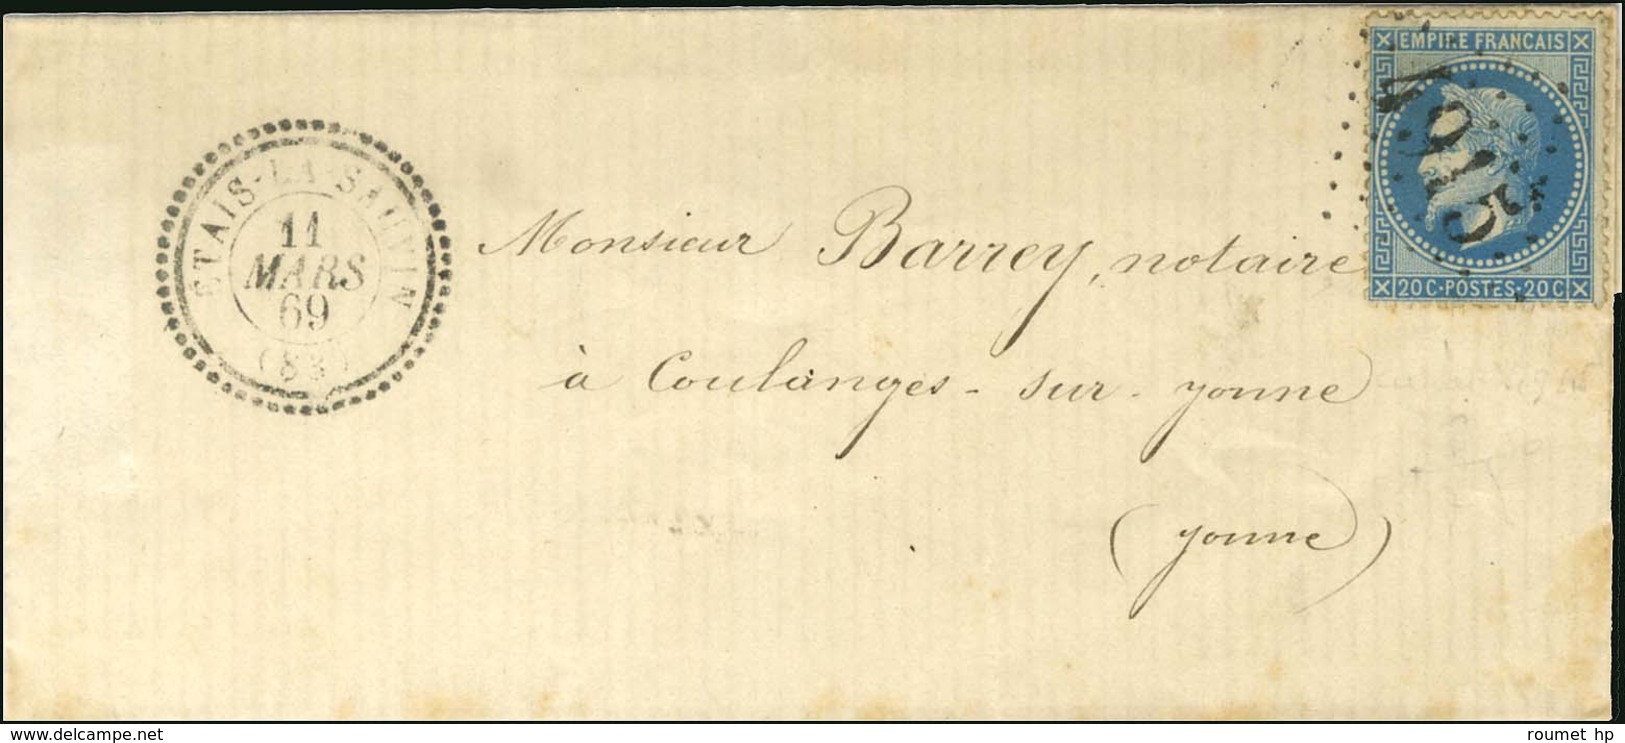 EMPIRE FRANCAIS
4915
20 C · POSTES · 20 C
ETAIS-LA-SAUVIN
11
MARS
69
Monsieur Barrey, notaire
à Coulanges - sur - yonne
(yonne)
delcampe.net
roumet hp